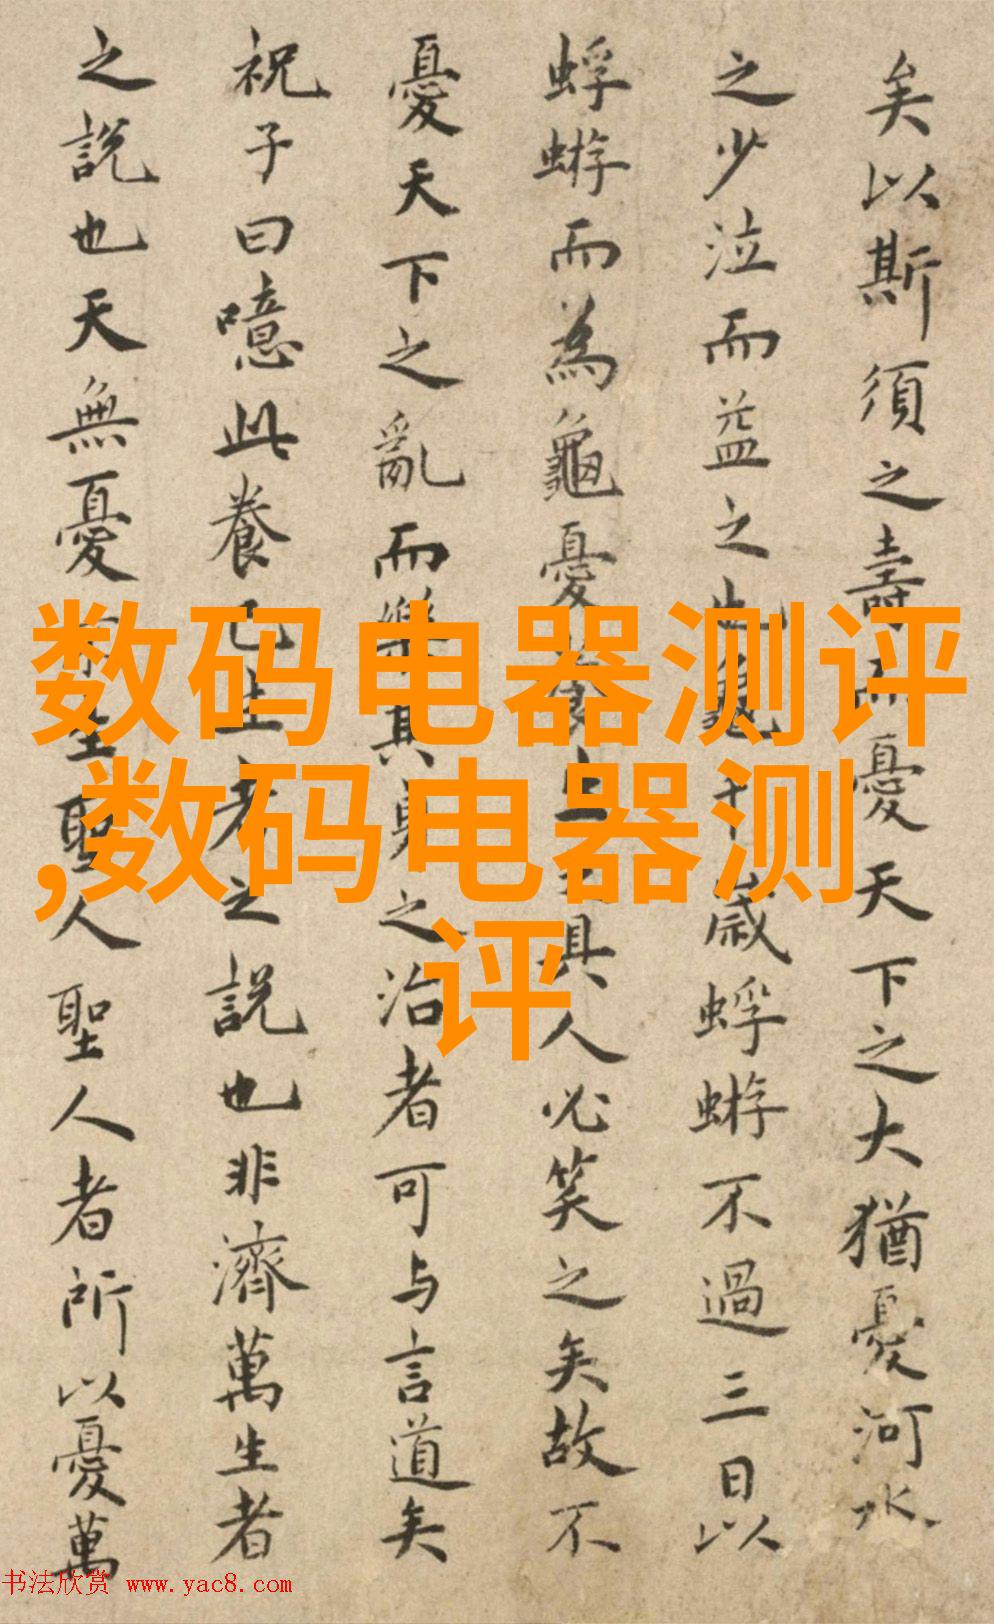 矣以斯須之壽而憂天下之大猶憂河水
之少泣而益之也龜千歲蜉蝣不過三日以
蜉蝣而為龜憂養生之具人必笑之矣故不
憂天下之亂而樂其身之治者可与言道矣
祝子曰噫此養己生者之說也非濟萬生者
之說也天無憂生聖人聖人者所以憂萬
数码电器测评
,数码电器测
评
书法欣赏 www.yac8.com